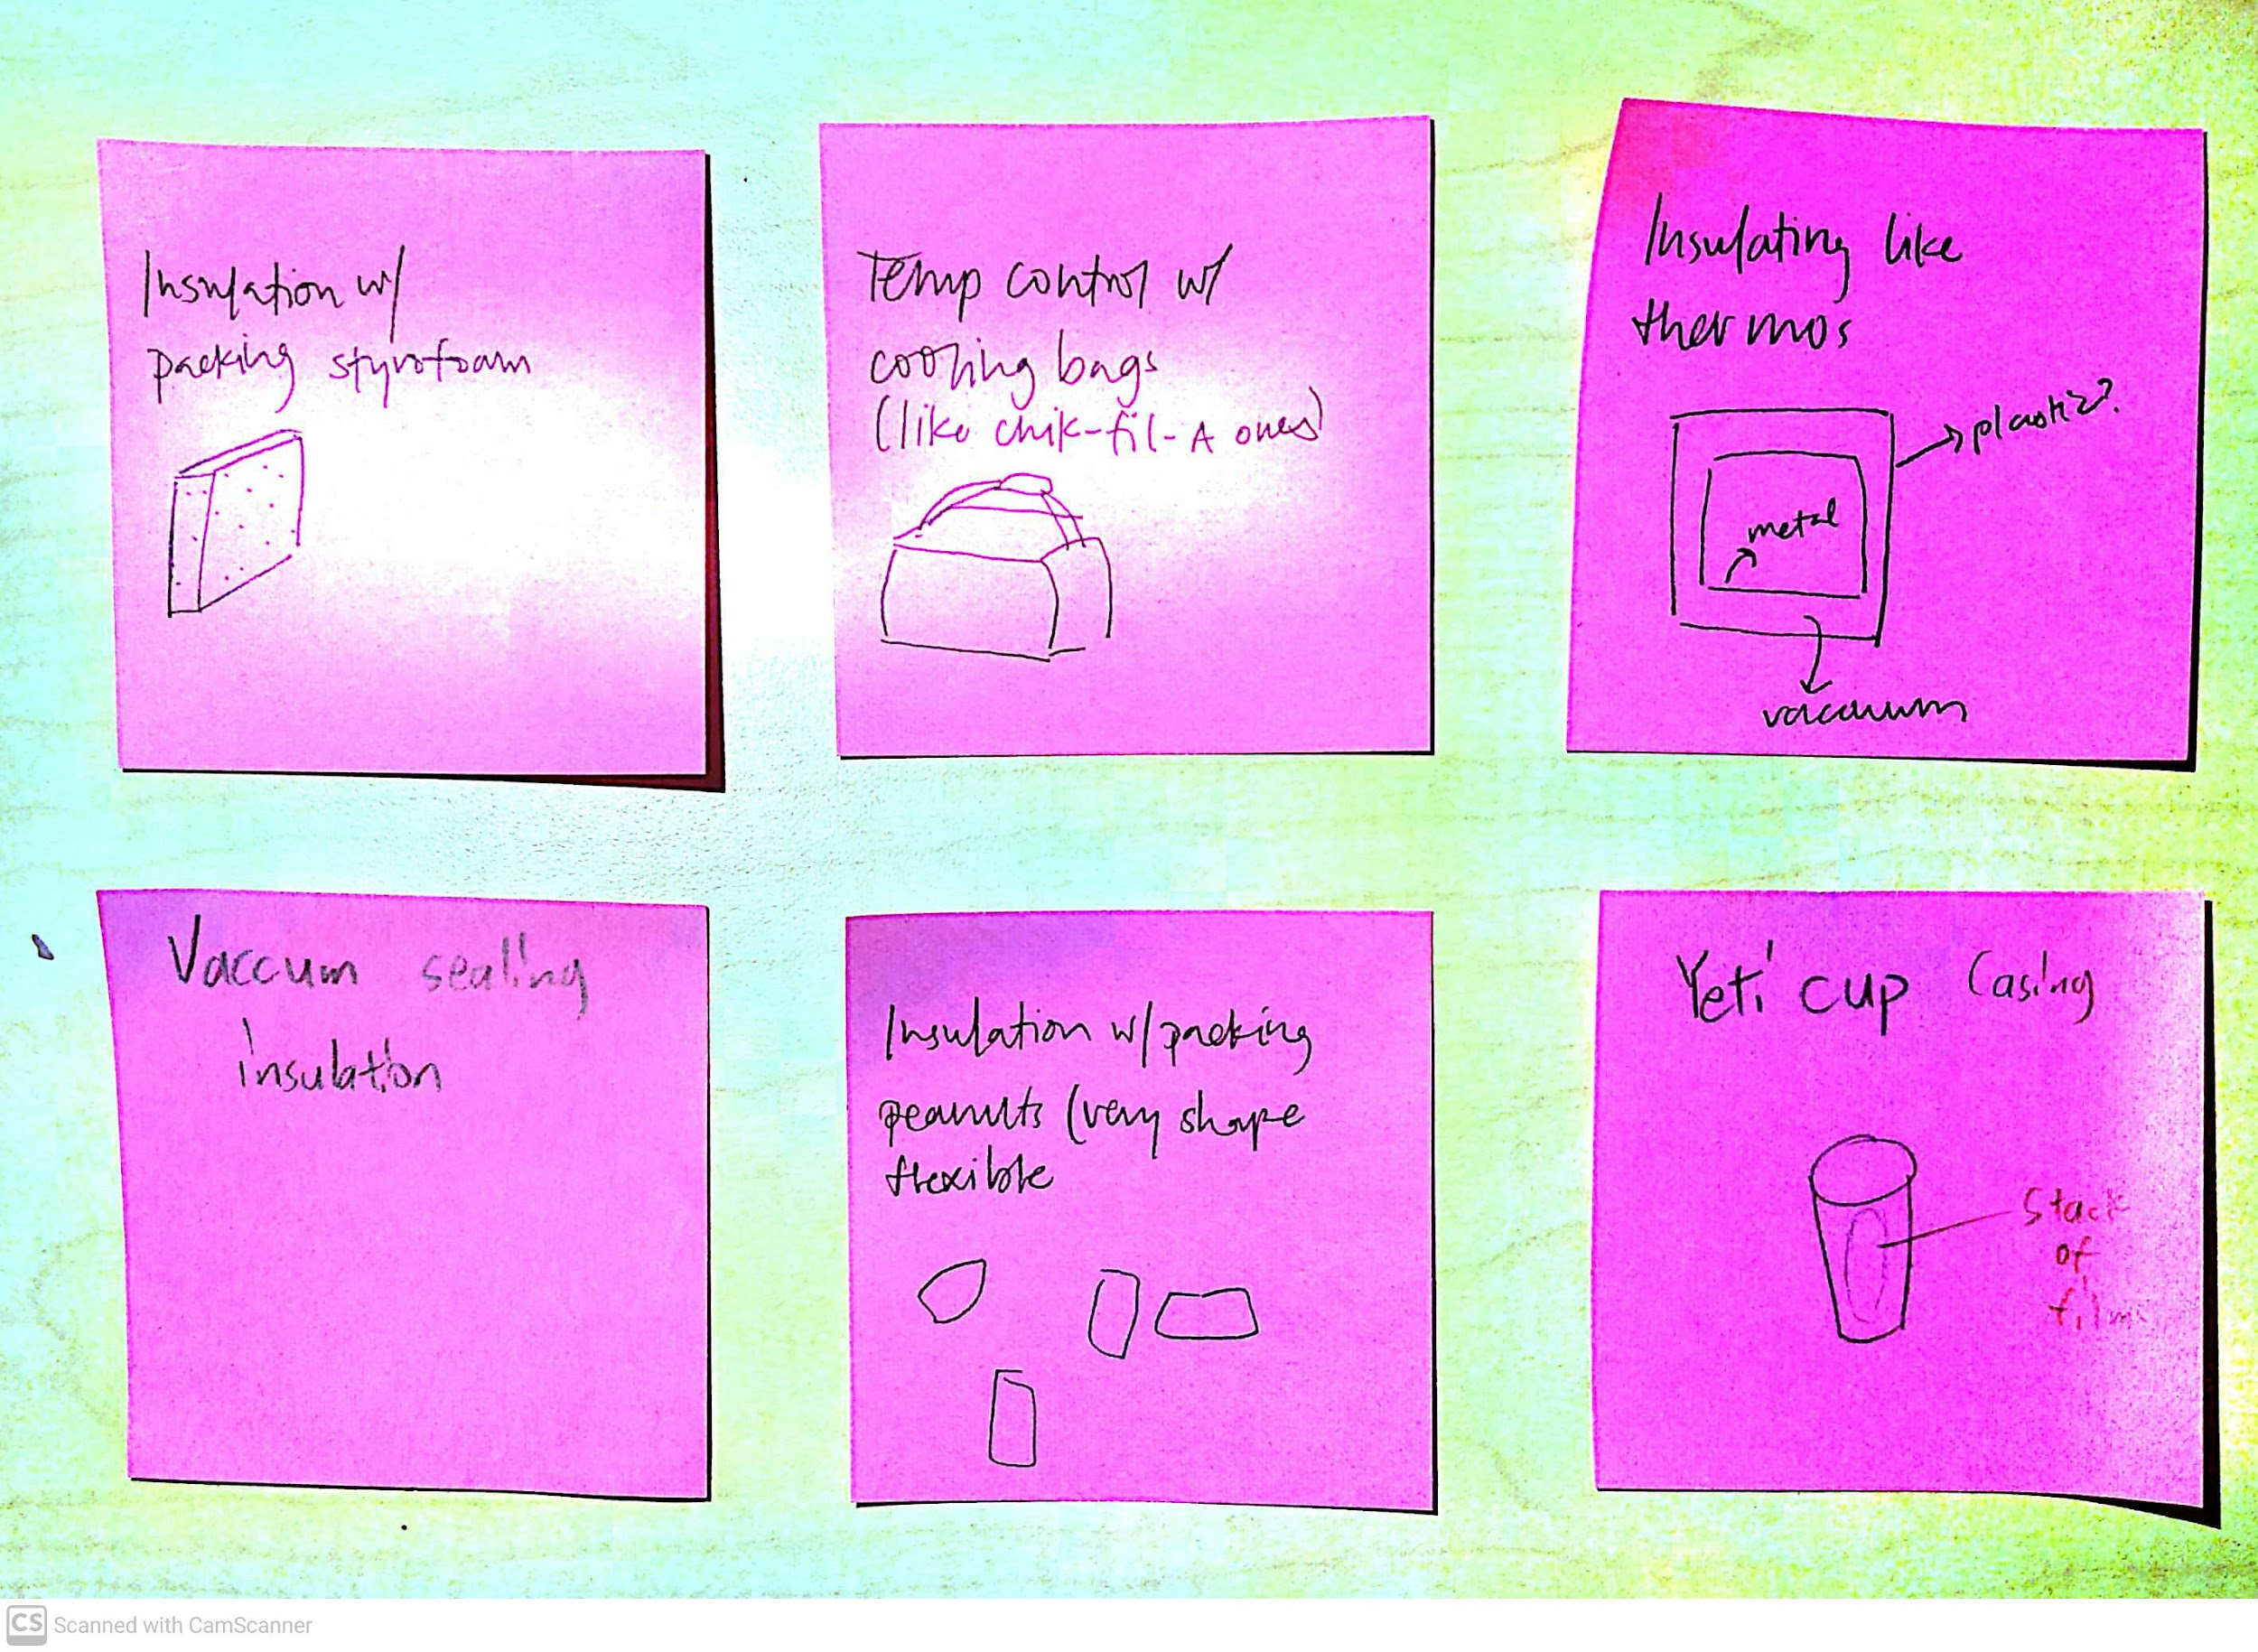 Insulation w/
packing styrofoam
Temp control w/
cooling bags
(like chik-fil-A ones)
Insulating like
thermos
plastic?
metal
vacuum
Vaccum sealing
insulation
Insulation w/ packing
peanuts (very shape
flexible
Yeti cup casing
Stack
of
film
CS Scanned with CamScanner